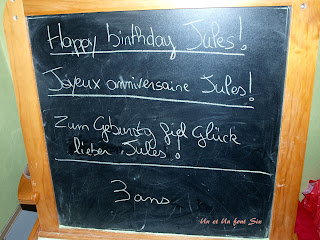 Happy birthday Jules!
Joyeux anniversaire Jules!
Zum Geburstag fiel Glück
lieber Jules.
3 ans
Un et Un font Six